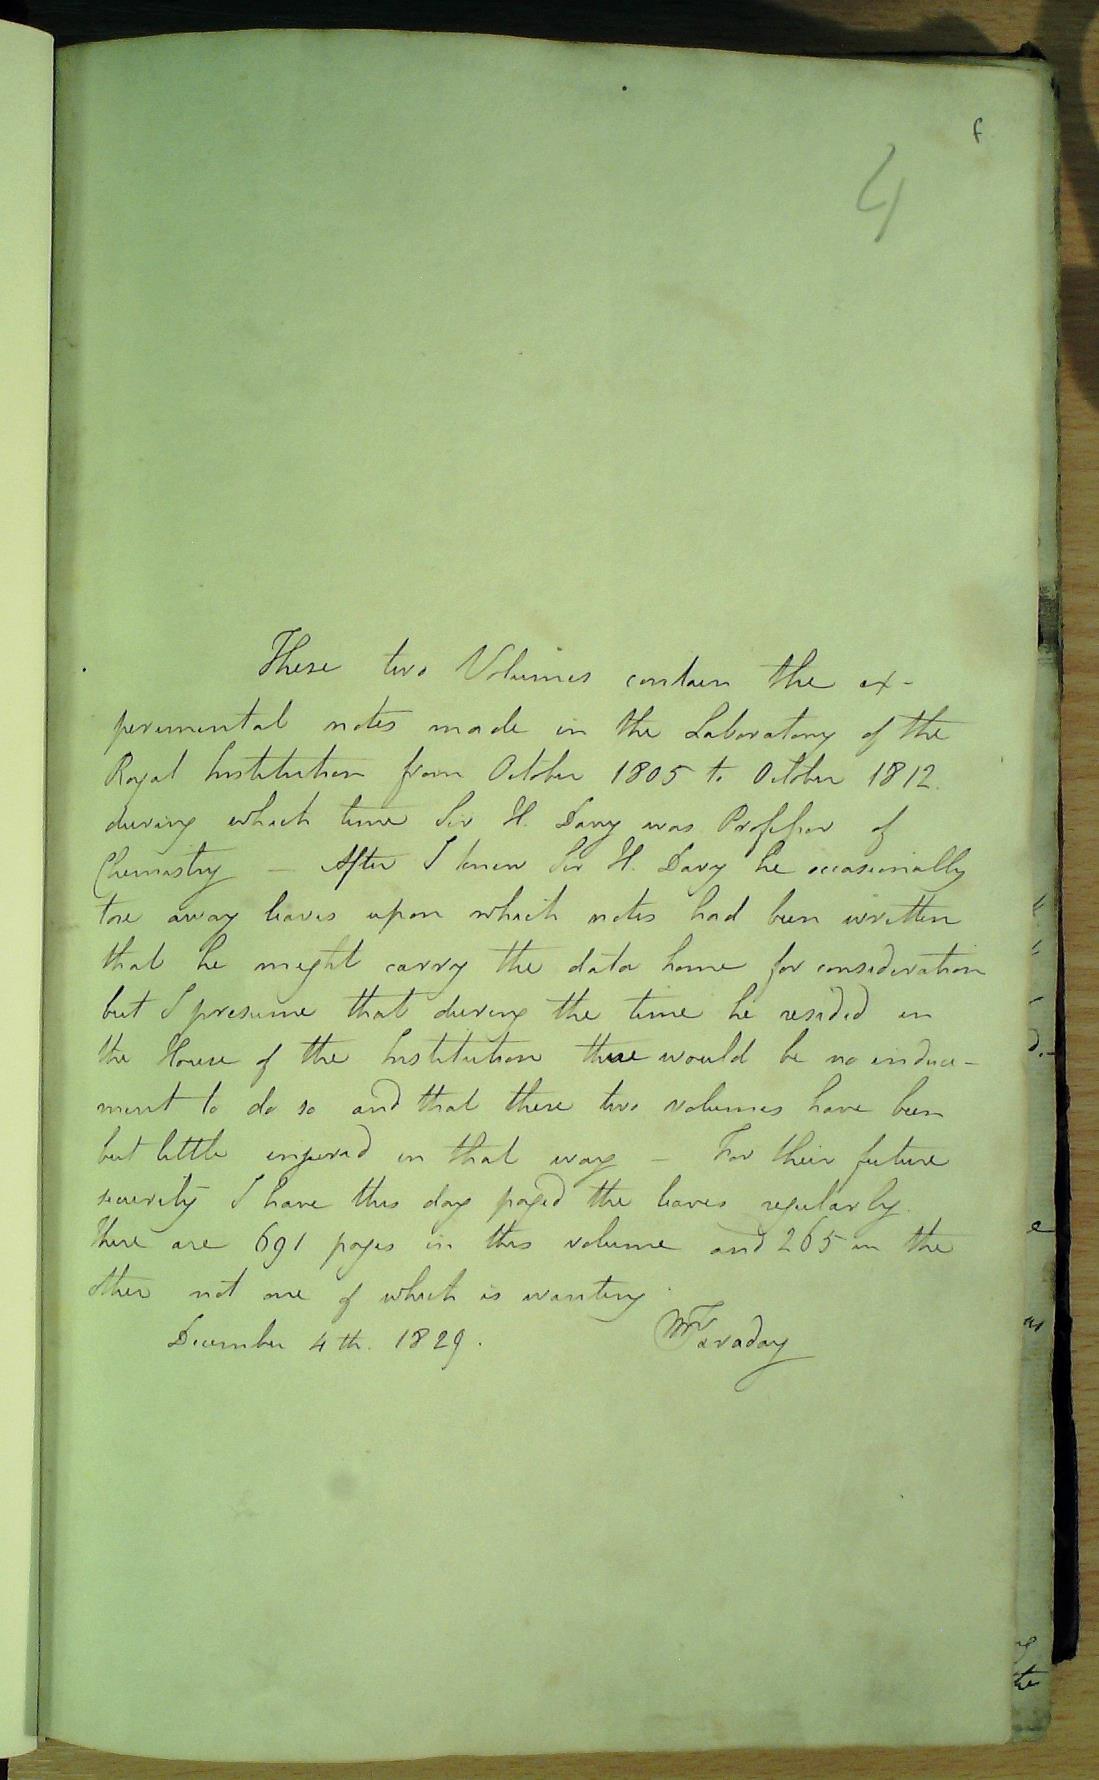 f
4
These two Volumes contain the ex-
perimental notes made in the Laboratory of the
Royal Institution from October 1805 to October 1812.
during which time Sir H. Davy was Professor of
Chemistry – After I knew Sir H. Davy he occasionally
tore away leaves upon which notes had been written
that he might carry the data home for consideration
but I presume that during the time he resided in
the House of the Institution there would be no induce-
ment to do so and that these two volumes have been
but little injured in that way – For their future
security I have this day paged the leaves regularly.
There are 691 pages in this volume and 265 in the
other not one of which is wanting.
December 4th. 1829. M Faraday
the